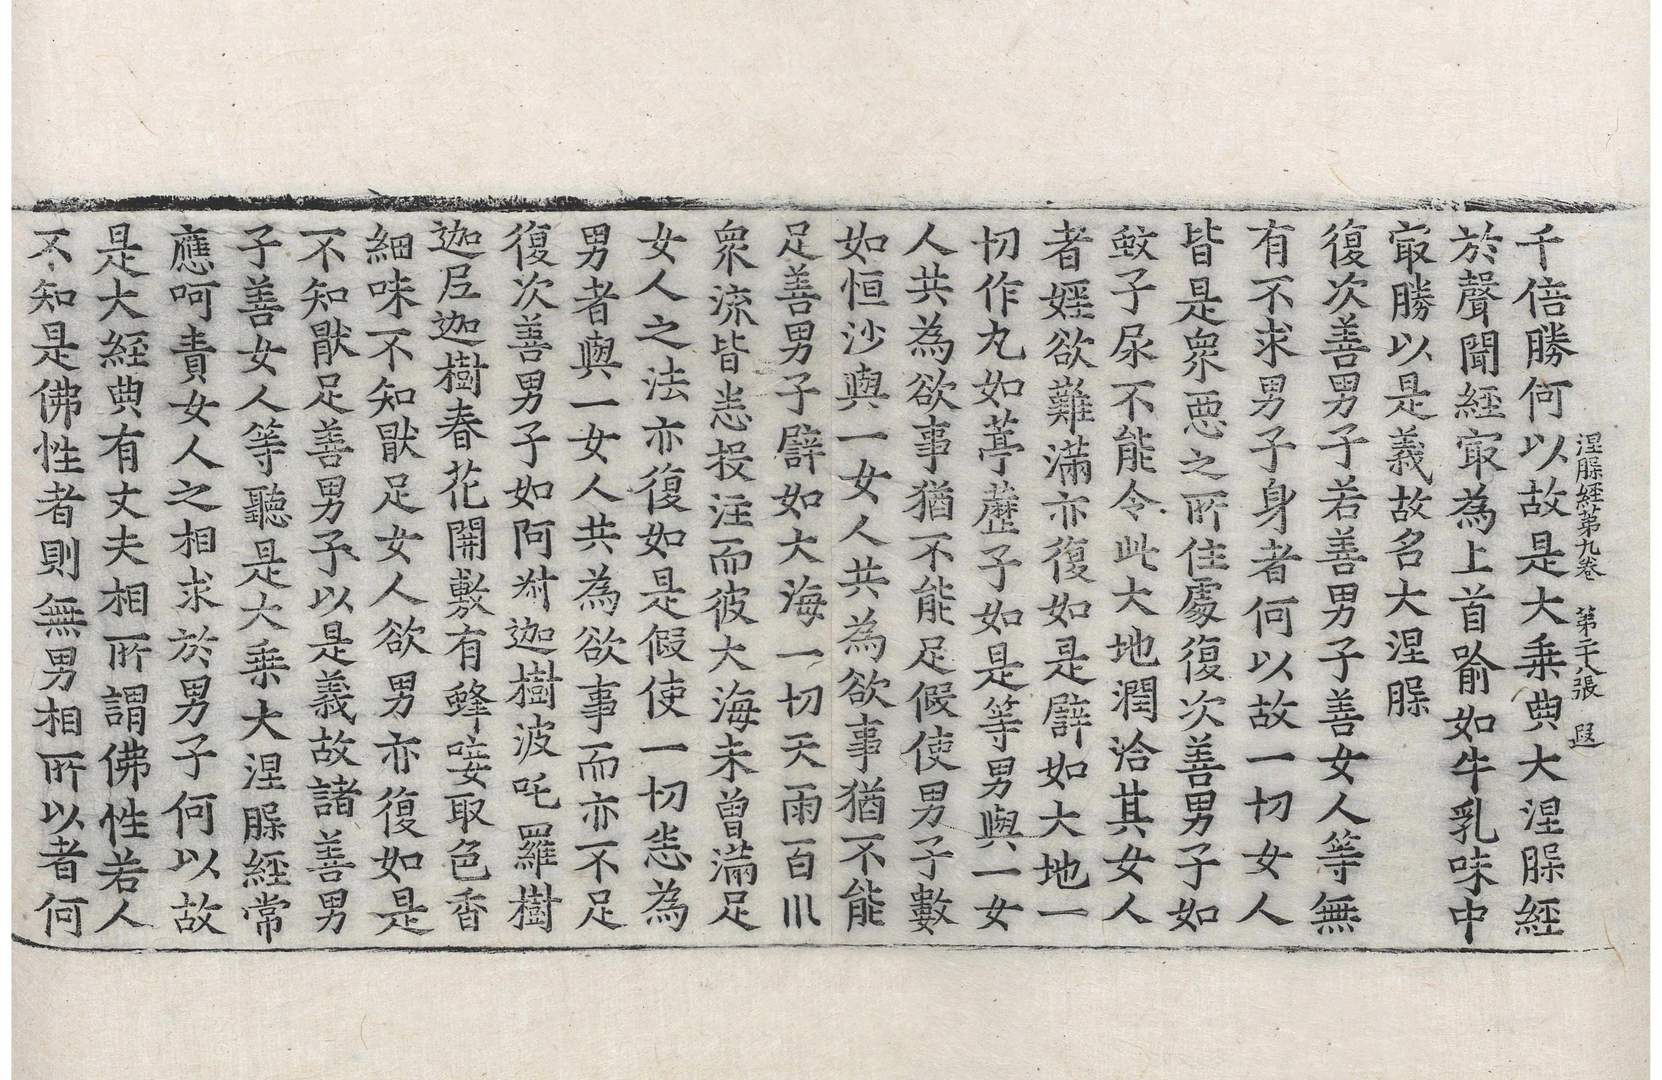 千倍勝何以故是大乗典大涅䏶經
涅䏶經第九卷　第二十八張　遐
於聲聞經㝡為上首喻如牛乳味中
㝡勝以是義故名大涅䏶
復次善男子若善男子善女人等無
有不求男子身者何以故一切女人
皆是衆惡之所住處復次善男子如
蚊子尿不能令此大地潤洽其女人
者婬欲難滿亦復如是譬如大地一
切作丸如葶藶子如是等男與一女
人共為欲事猶不能足假使男子數
如恒沙與一女人共為欲事猶不能
足善男子譬如大海一切天雨百川
衆流皆悉投注而彼大海未曾滿足
女人之法亦復如是假使一切悉為
男者與一女人共為欲事而亦不足
復次善男子如阿㕊迦樹波吒羅樹
迦尼迦樹春花開敷有蜂唼取色香
細味不知猒足女人欲男亦復如是
不知猒足善男子以是義故諸善男
子善女人等聽是大乗大涅䏶經常
應呵責女人之相求於男子何以故
是大經典有丈夫相所謂佛性若人
不知是佛性者則無男相所以者何